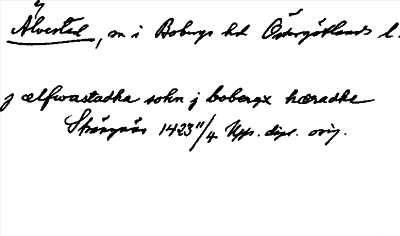 Älvestad, sn i Bobergs hd Östergötlands l.
j ælfwastadha sokn j bobergx hæradhe
Strängnäs 1423 11/4 Upps. dipl. orig.